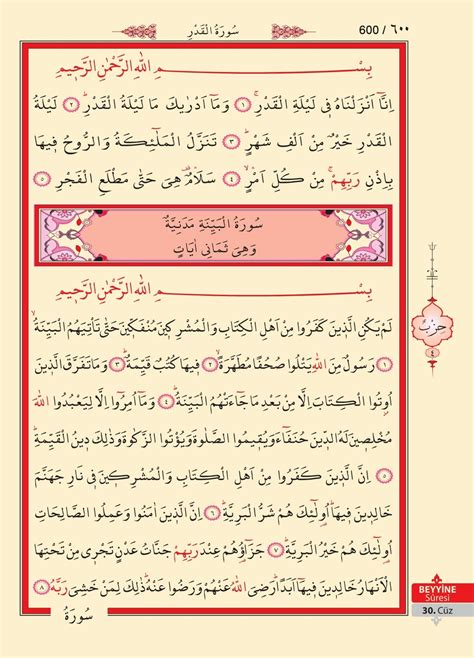 سُورَةُ الْقَدْرِ
600 / ٦٠٠
بِسْمِ اللهِ الرَّحْمٰنِ الرَّح۪يمِ
اِنَّٓا اَنْزَلْنَاهُ ف۪ي لَيْلَةِ الْقَدْرِۚ ١ وَمَٓا اَدْرٰيكَ مَا لَيْلَةُ الْقَدْرِۜ ٢ لَيْلَةُ
الْقَدْرِ خَيْرٌ مِنْ اَلْفِ شَهْرٍۜ ٣ تَنَزَّلُ الْمَلٰٓئِكَةُ وَالرُّوحُ ف۪يهَا
بِاِذْنِ رَبِّهِمْۚ مِنْ كُلِّ اَمْرٍۙ ٤ سَلَامٌ۠ هِيَ حَتّٰى مَطْلَعِ الْفَجْرِ ٥
سُورَةُ الْبَيِّنَةِ مَدَنِيَّةٌ
وَهِيَ ثَمَانِي اٰيَاتٍ
بِسْمِ اللهِ الرَّحْمٰنِ الرَّح۪يمِ
لَمْ يَكُنِ الَّذ۪ينَ كَفَرُوا مِنْ اَهْلِ الْكِتَابِ وَالْمُشْرِك۪ينَ مُنْفَكّ۪ينَ حَتّٰى تَأْتِيَهُمُ الْبَيِّنَةُۙ
١ رَسُولٌ مِنَ اللهِ يَتْلُوا صُحُفًا مُطَهَّرَةًۙ ٢ ف۪يهَا كُتُبٌ قَيِّمَةٌۜ ٣ وَمَا تَفَرَّقَ الَّذ۪ينَ
اُوتُوا الْكِتَابَ اِلَّا مِنْ بَعْدِ مَا جَٓاءَتْهُمُ الْبَيِّنَةُۜ ٤ وَمَٓا اُمِرُٓوا اِلَّا لِيَعْبُدُوا اللهَ
مُخْلِص۪ينَ لَهُ الدّ۪ينَ حُنَفَٓاءَ وَيُق۪يمُوا الصَّلٰوةَ وَيُؤْتُوا الزَّكٰوةَ وَذٰلِكَ د۪ينُ الْقَيِّمَةِۜ
٥ اِنَّ الَّذ۪ينَ كَفَرُوا مِنْ اَهْلِ الْكِتَابِ وَالْمُشْرِك۪ينَ ف۪ي نَارِ جَهَنَّمَ
خَالِد۪ينَ ف۪يهَاۜ اُو۬لٰٓئِكَ هُمْ شَرُّ الْبَرِيَّةِۜ ٦ اِنَّ الَّذ۪ينَ اٰمَنُوا وَعَمِلُوا الصَّالِحَاتِ
اُو۬لٰٓئِكَ هُمْ خَيْرُ الْبَرِيَّةِۜ ٧ جَزَٓاؤُ۬هُمْ عِنْدَ رَبِّهِمْ جَنَّاتُ عَدْنٍ تَجْر۪ي مِنْ تَحْتِهَا
الْاَنْهَارُ خَالِد۪ينَ ف۪يهَٓا اَبَدًاۜ رَضِيَ اللهُ عَنْهُمْ وَرَضُوا عَنْهُۜ ذٰلِكَ لِمَنْ خَشِيَ رَبَّهُ ٨
سُورَةُ
حزب
٤
BEYYİNE
Sûresi
30. Cüz